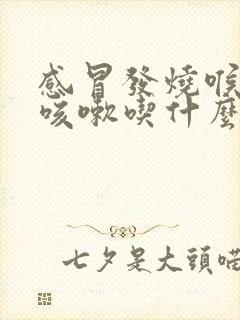 感冒發燒喉
咳嗽喫什麼
七夕是大頭喏